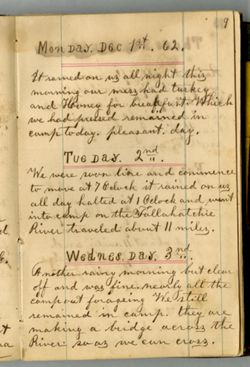 9
Monday. Dec 1st. 62.
It rained on us all night this
morning our mess had turkey
and Honey for breakfast. Which
we had pressed remained in
camp today. pleasant. day.
Tuesday. 2nd.
We were in line and commence
to move at 7 Oclock it rained on us
all day halted at 1 Oclock and went
into camp on the Tallahatchie
River traveled about 11 miles.
Wednesday. 3rd.
Another rainy morning but clear
off and was fine. nearly all the
camp out foraging We still
remained in camp. they are
making a bridge across the
River. so as we can cross.